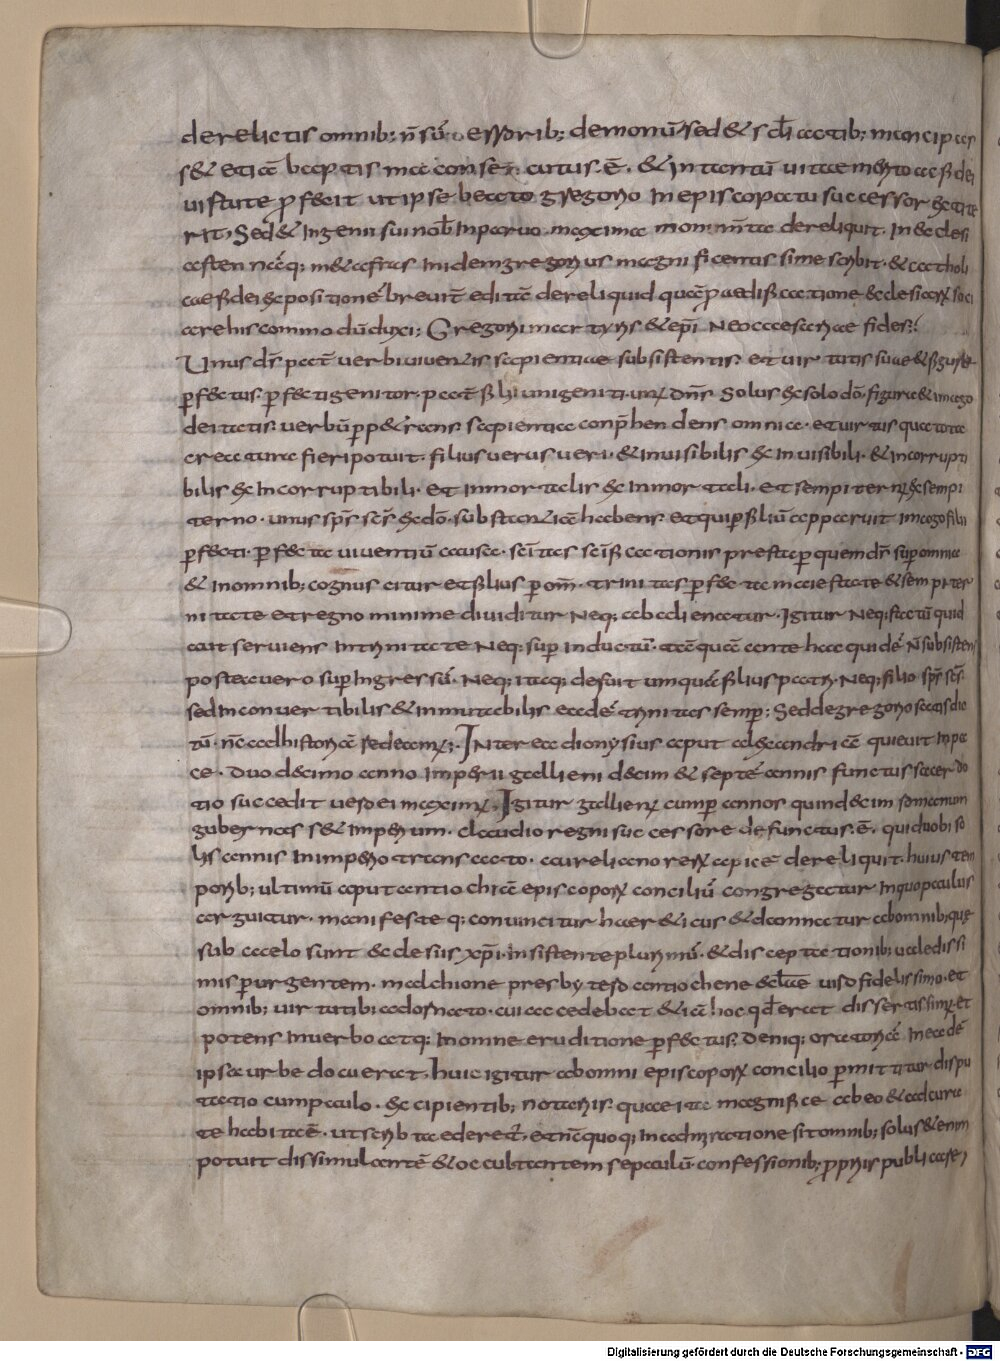 derelictis omnib; n̄ sū essorib; demonū sed & s cl̄i actib; mancipas
s& etiā baptis ma consecutus. ē. & intantū uitae merito ac fidei
uirtute profecit ut ipse beato gregorio In episcopatu successor exti te
rit, Sed & Ingenii sui nob̄ Inparuo maxima monim̄ta dereliquit. In ecclesi
asten nāq; m&afras Inidem gregorius magnificentissime scribit. & catholi
cae fidei expositionē breuit̄ editā dereliquid quā p aedificatione ecclesiarum soci
are his commodū duxi; Gregorii martyris & ep̄i Neocaesariae fides.
Unus dr̄ pat̄ verbi viventis sapientiae subsistentis. et uir tutis suae & figurae
perfectus. perfecti genitor. pat̄ filii unigeniti. unus dn̄s Solus ex solo dō. figura & imago
deitatis. uerbū pp&rans sapientia conp̄hendens omnia. et uirtus qua tota
creatura fieri potuit. filius uerus ueri. & inuisibilis ex Inuisibili. & incorrupti
bilis ex Incorruptibili. et Inmortalis ex Inmortali. et sempiternus ex sempi
terno. unus sp̄s sc̄s ex dō. substantiā habens et qui p filiū apparuit imago filii
perfecti. perfecta uiuentiū causa. sc̄itas sc̄ificationis prestatrix p quem dr̄ super omnia
& Inomnib; cognuscitur et filius p om̄. trinitas perfecta maiestate & sempiter
nitate et regno minime diuiditur Neq; abalienatur. Igitur Neq; factū quid
aut seruiens Intrinitate Neq; super Inductū. tāquā ante hac quidē n̄ subsistens
postea uero super Ingressū. Neq; itaq; defuit umquā filius patri. Neq; filio sp̄s sc̄s.
sed Inconuertibilis & inmutabilis eadē trinitas semper; Sed de gregorio satis dic
tū. nc̄ ad historiā redeamus; Interea dionysius aput alexandriā quieuit Inpa
ce. duodecimo anno Imperii gallieni decim & septē annis functus sacerdo
tio succedit uero ei maximus. Igitur gallienus cump annos quindecim romanum
gubernas s& Imperium. claudio regni successore defunctus. ē. qui duobi so
lis annis Inimperio transacto. aureliano rerum apice dereliquit. huius tem
porib; ultimū aput antiochiā episcoporum conciliū congregatur Inquo paulus
arguitur. manifeste q; conuincitur haer&icus & damnatur abomnib; que
sub caelo sunt ecclesiis xp̄i. Insistente plurimū. & disceptationib; ualedissi
mis p urgentem. malchione presbytero antiochene ecclae uiro fidelissimo. et
omnib; uirtutib; adornato. cui accedebat & iā hoc qd̄ erat dissertissimus. et
potens Inuerbo atq; Inomne eruditione perfectus. Deniq; oratoriā Ineadē
ipsa urbe docuerat, huic igitur abomni episcoporum concilio permittitur dispu
tatio cumpaulo. excipientib; notariis. quae ita magnifice abeo & adcura
te habita ē. ut scribta ederet̄. et nc̄ quoq; Inadmiratione sit omnib; solus & enim
potuit dissimulantē & occultantem se paulū. confessionib; propriis publicare